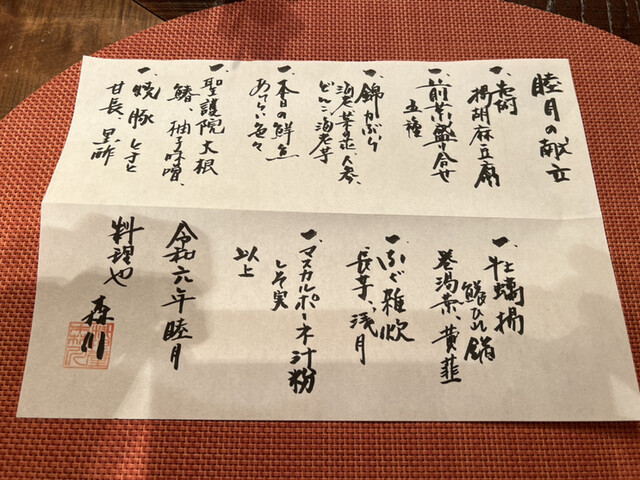 睦月の献立
一、先附
揚胡麻豆腐
一、前菜盛り合せ
五種
一、錦かぶら
海老芋
どんこ
一、本日の鮮魚
あしらい色々
一、聖護院大根
鰆、柚子味噌、
一、焼豚
甘長 黒酢
一、牡蠣揚
鱶ひれ鍋
巻湯葉、黄韮
一、ふぐ雑炊
長芋、浅月
一、マスカルポーネ汁粉
しそ実
以上
令和六年睦月
料理や 森川